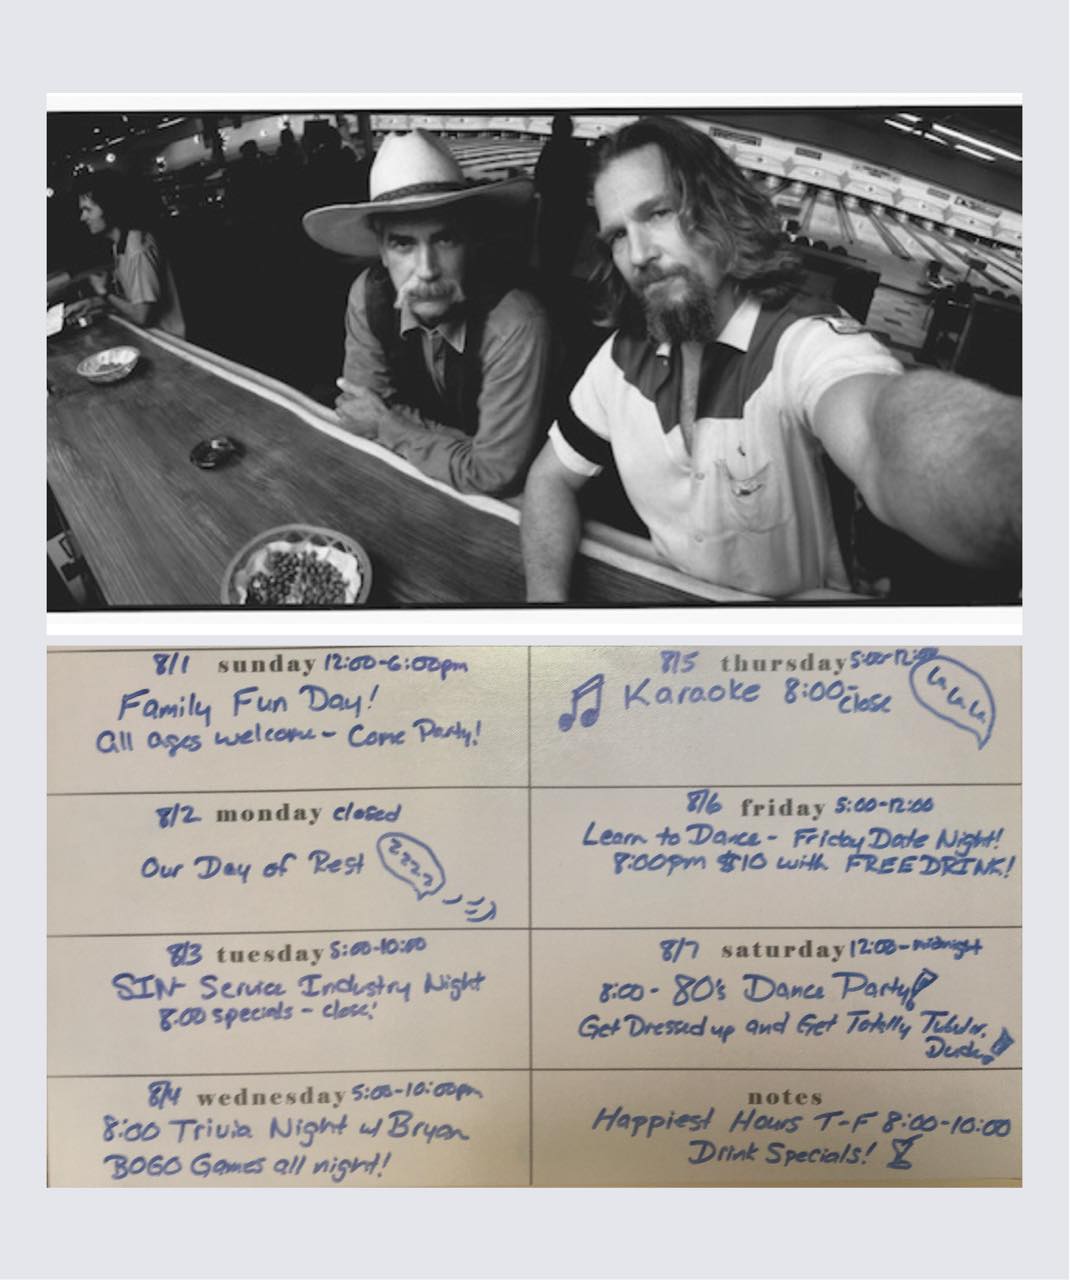 8/1 sunday 12:00-6:00pm
Family Fun Day!
All ages welcome - Come Party!
8/2 monday closed
Our Day of Rest
zzzz
8/3 tuesday 5:00-10:00
SIN- Service Industry Night
8:00 specials - close!
8/4 wednesday 5:00-10:00pm
8:00 Trivia Night w/ Bryan
BOGO Games all night!
8/5 thursday 5:00-12:00
Karaoke 8:00-
close
La La La
8/6 friday 5:00-12:00
Learn to Dance - Friday Date Night!
8:00pm $10 with FREE DRINK!
8/7 saturday 12:00-midnight
8:00 - 80's Dance Party!
Get Dressed up and Get Totally Tubular,
Dude!
notes
Happiest Hours T-F 8:00-10:00
Drink Specials!